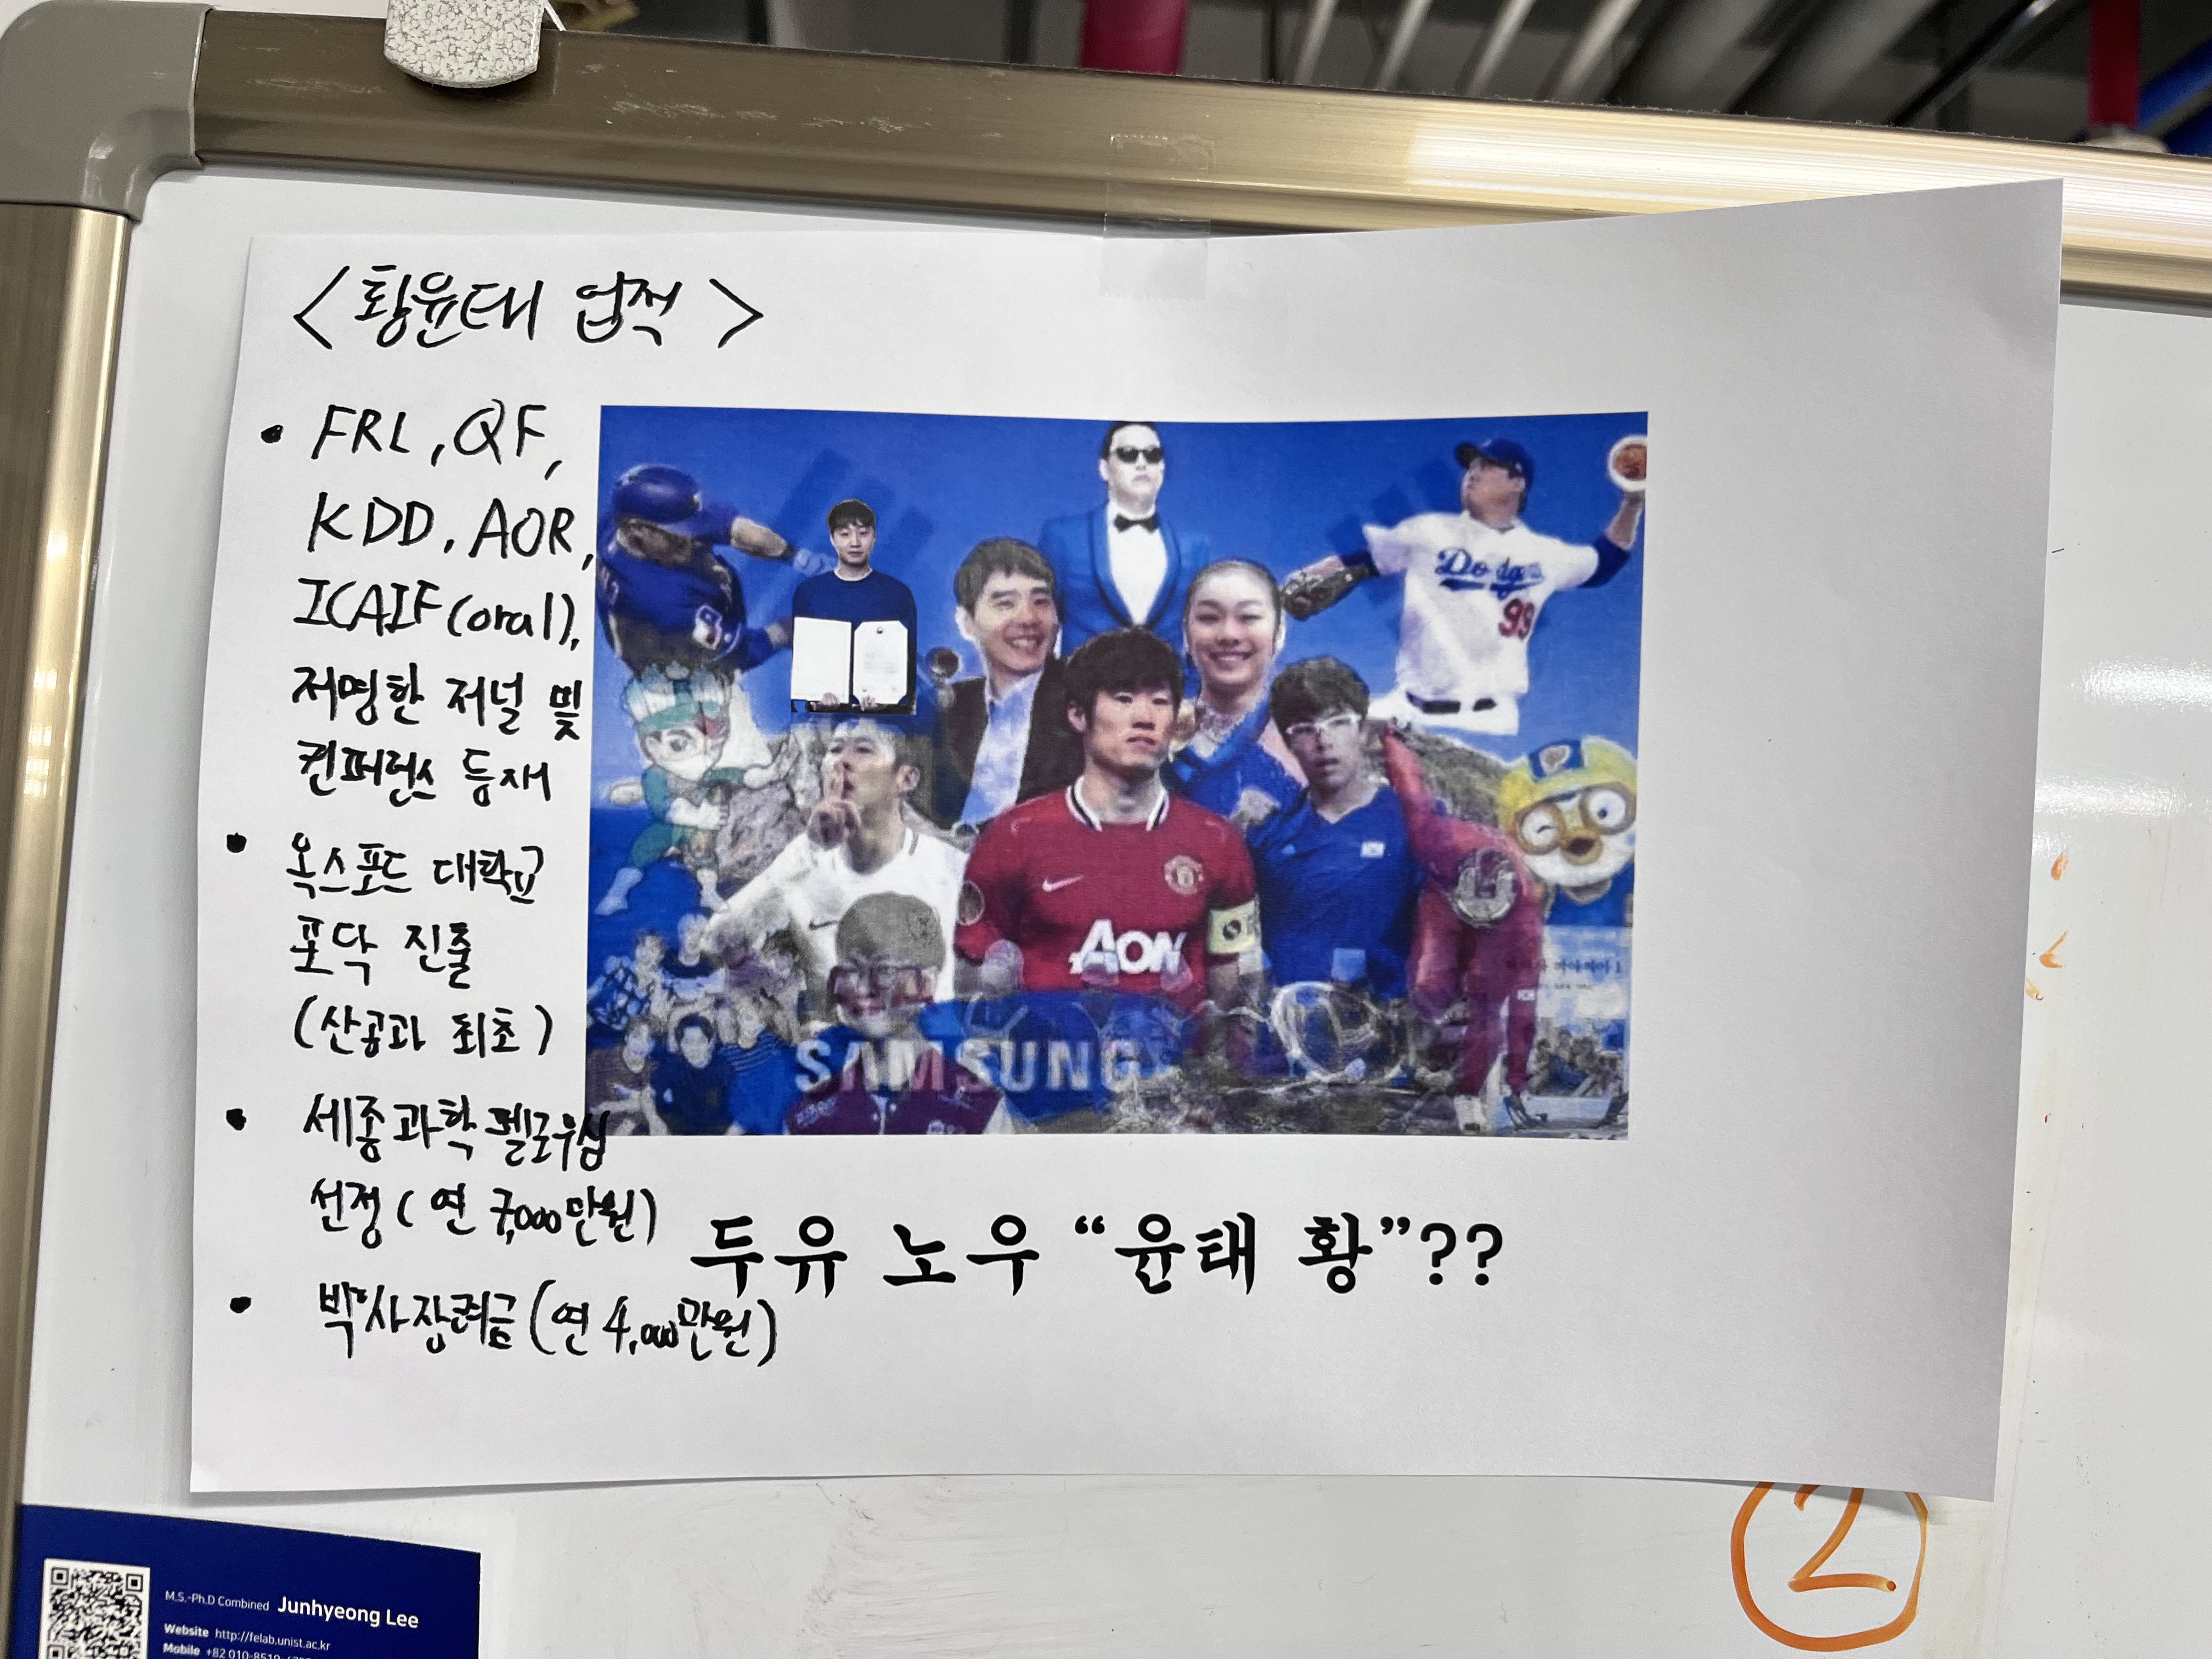 <황윤태 업적>
• FRL, QF,
KDD, AOR,
ICAIF(oral),
저명한 저널 및
컨퍼런스 등재
• 옥스포드 대학교
포닥 진출
(산공과 최초)
• 세종과학펠로우십
선정(연 7,000만원)
• 박사장려금(연 4,000만원)
Dodgers
99
AON
SAMSUNG
두유 노우 “윤태 황”??
M.S.-Ph.D Combined Junhyeong Lee
Website http://felab.unist.ac.kr
Mobile +82 010-8510-
2